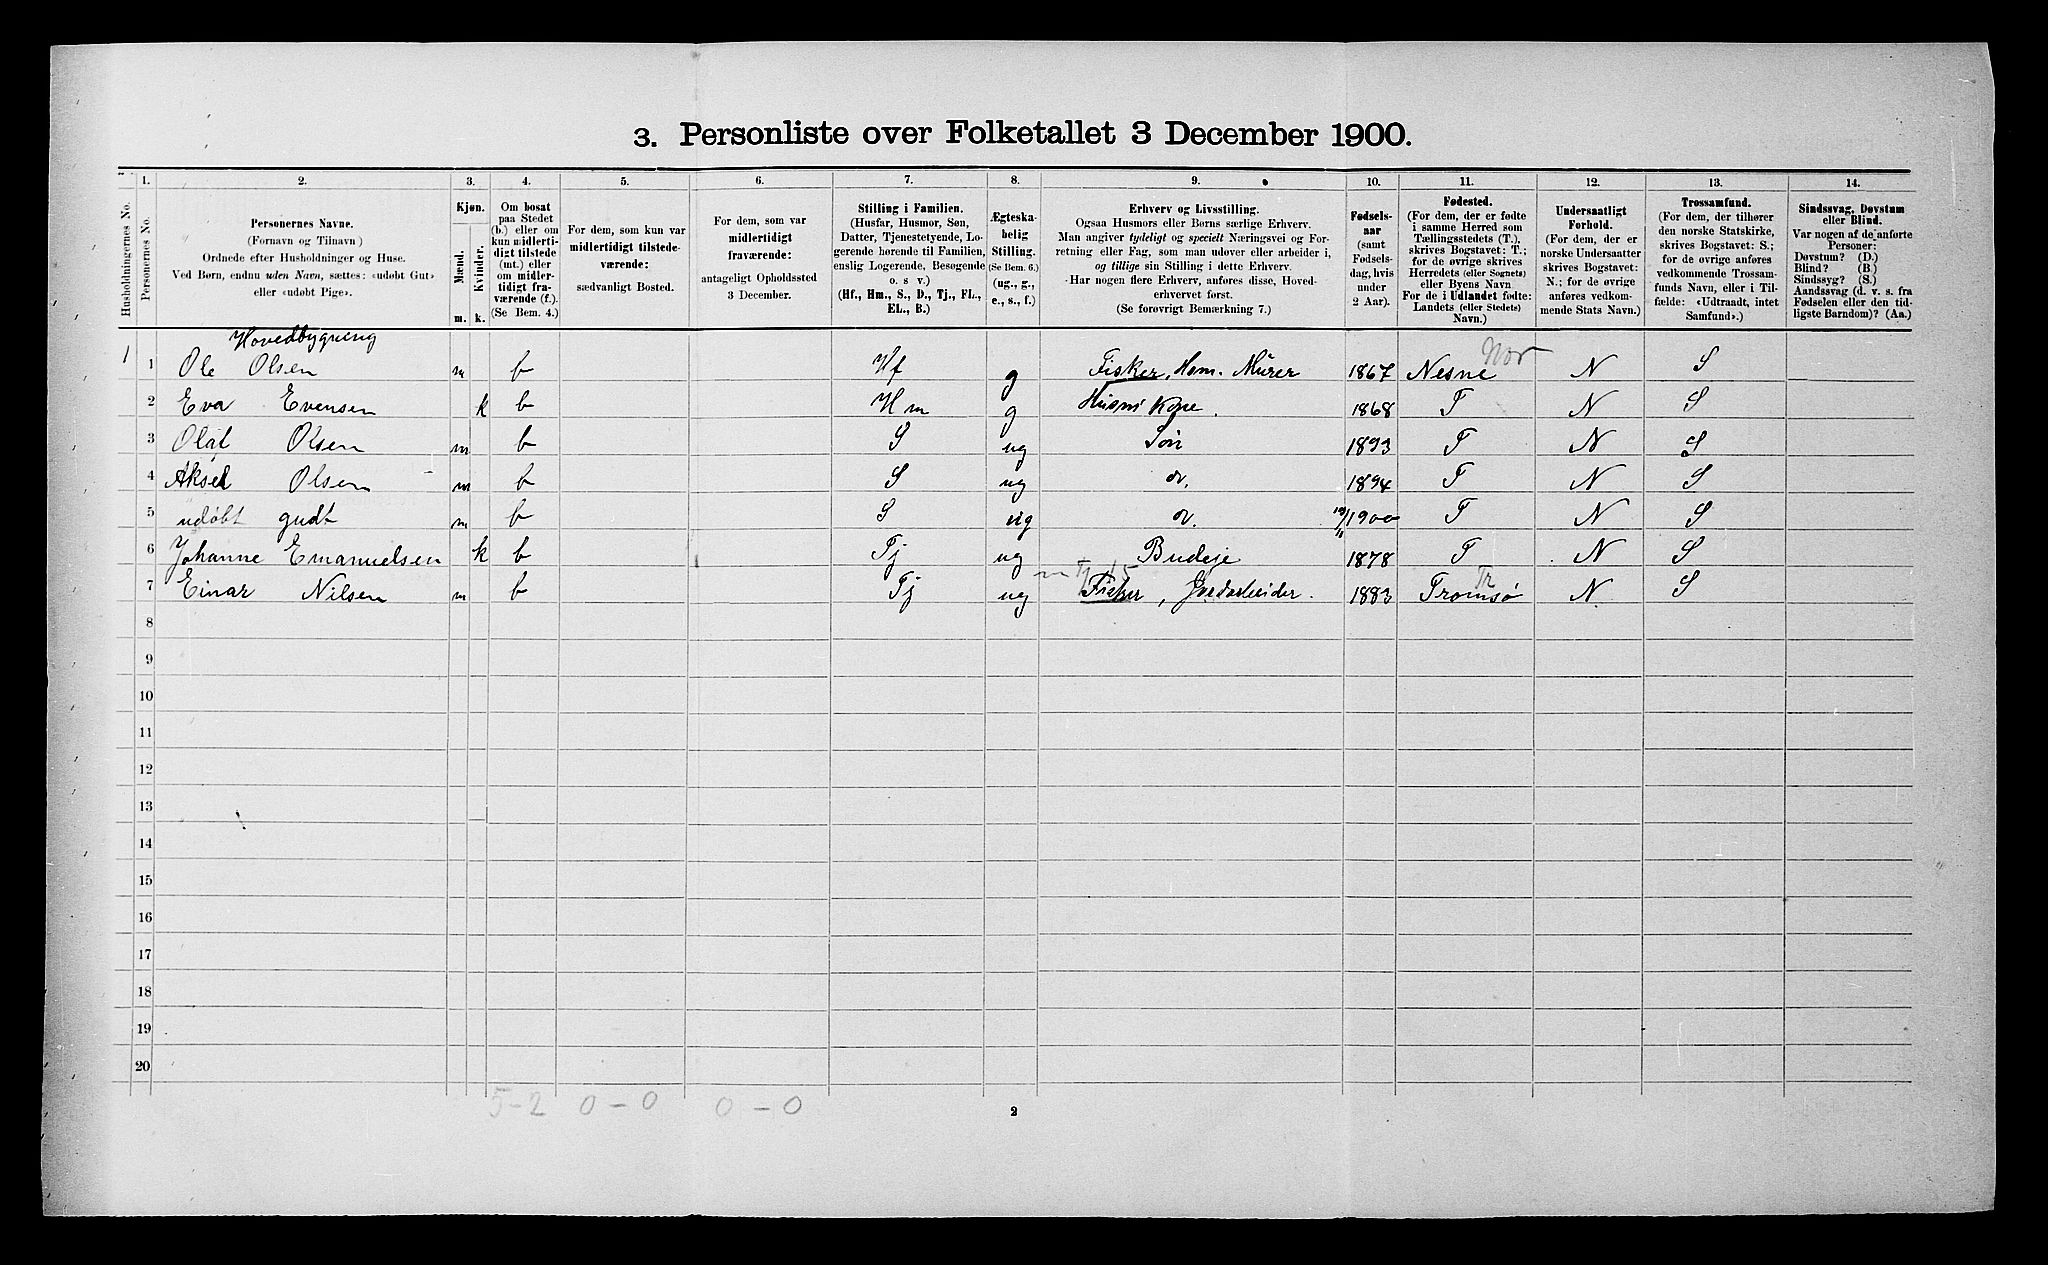 3. Personliste over Folketallet 3 December 1900.
1. 2. 3. 4. 5. 6. 7. 8. 9. 10. 11. 12. 13. 14.
Husholdningernes No.
Personernes No.
Personernes Navne.
(Fornavn og Tilnavn)
Ordnede efter Husholdninger og Huse.
Ved Børn, endnu uden Navn, sættes: «udøbt Gut»
eller «udøbt Pige».
Kjøn.
Mænd.
Kvinder.
m. k.
Om bosat
paa Stedet
(b.) eller om
kun midlerti-
digt tilstede
(mt.) eller
om midler-
tidigt fra-
værende (f.).
(Se Bem. 4.)
For dem, som kun var
midlertidigt tilstede-
værende:
sædvanligt Bosted.
For dem, som var
midlertidigt
fraværende:
antageligt Opholdssted
3 December.
Stilling i Familien.
(Husfar, Husmor, Søn,
Datter, Tjenestetyende, Lo-
gerende hørende til Familien,
enslig Logerende, Besøgende
o. s v.)
(Hf., Hm., S., D., Tj., FL.,
EL., B.)
Ægteska-
belig
Stilling.
(Se Bem. 6.)
(ug., g.,
e., s., f.)
Erhverv og Livsstilling.
Ogsaa Husmors eller Børns særlige Erhverv.
Man angiver tydeligt og specielt Næringsvei og For-
retning eller Fag, som man udøver eller arbeider i,
og tillige sin Stilling i dette Erhverv.
Har nogen flere Erhverv, anføres disse, Hoved-
erhvervet først.
(Se forøvrigt Bemærkning 7.)
Fødsels-
aar
(samt
Fødsels-
dag, hvis
under
2 Aar).
Fødested.
(For dem, der er fødte
i samme Herred som
Tællingsstedets (T.),
skrives Bogstavet: T.;
for de øvrige skrives
Herredets (eller Sognets)
eller Byens Navn
For de i Udlandet fødte:
Landets (eller Stedets)
Navn.)
Undersaatligt
Forhold.
(For dem, der er
norske Undersaatter
skrives Bogstavet:
N.; for de øvrige
anføres vedkom-
mende Stats Navn.)
Trossamfund.
(For dem, der tilhører
den norske Statskirke,
skrives Bogstavet: S.;
for de øvrige anføres
vedkommende Trossam-
funds Navn, eller i Til-
fælde: «Udtraadt, intet
Samfund».)
Sindssvag, Døvstum
eller Blind.
Var nogen af de anførte
Personer:
Døvstum? (D.)
Blind? (B.)
Sindssyg? (S.)
Aandssvag (d. v. s. fra
Fødselen eller den tid-
ligste Barndom)? (Aa.)
Hovedbygning
1 1 Ole Olsen m b Hf g Fisker, Hem. Mürer 1867 Nesne Nor N S
2 Eva Evensen k b Hm g Husm Kone. 1868 T N S
3 Olaf Olsen m b S ug Søn 1893 T N S
4 Aksel Olsen m b S ug do. 1894 T N S
5 udøbt gudt m b S ug do. 1900 T N S
6 Johanne Emanuelsen k b Tj ug Budeje 1878 T N S
7 Einar Nilsen m b Tj ug Fisker, Jordarbeider. 1883 Tromsø Tr N S
8
9
10
11
12
13
14
15
16
17
18
19
20
5-2 0-0 0-0
2